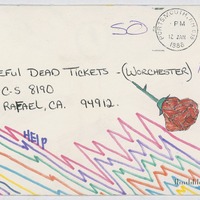 SO
PORTSMOUTH,
PM
12 JAN
1988
EFUL DEAD TICKETS - (WORCHESTER)
C-S 8190
RAFAEL, CA. 94912.
HELP